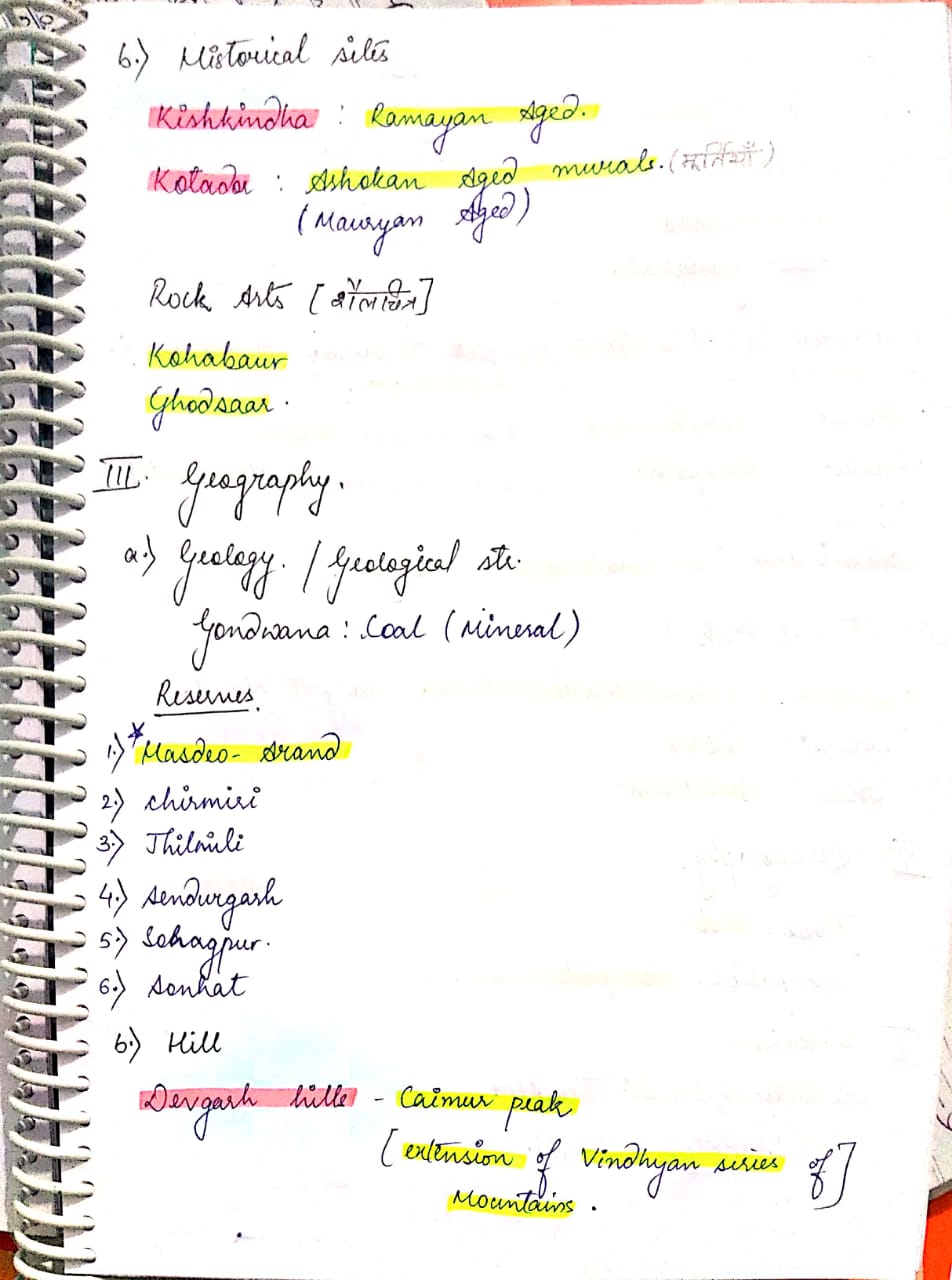 6.) Historical sites
Kishkindha : Ramayan Aged.
Kotadol : Ashokan Aged murals. (मूर्तियाँ)
(Mauryan Aged)
Rock Arts [शैलचित्र]
Kohabaur
Ghodsaar.
III. Geography.
a.) Geology. / Geological str.
Gondwana : Coal (Mineral)
Reserves.
1.) * Hasdeo - Arand
2.) Chirmiri
3.) Jhilmili
4.) Sendurgarh
5.) Sohagpur.
6.) Sonhat
b.) Hill
Devgarh hills - Caimur peak
[extension of Vindhyan series of]
Mountains.